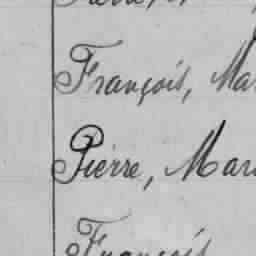 François, Mar
Pierre, Mari
François